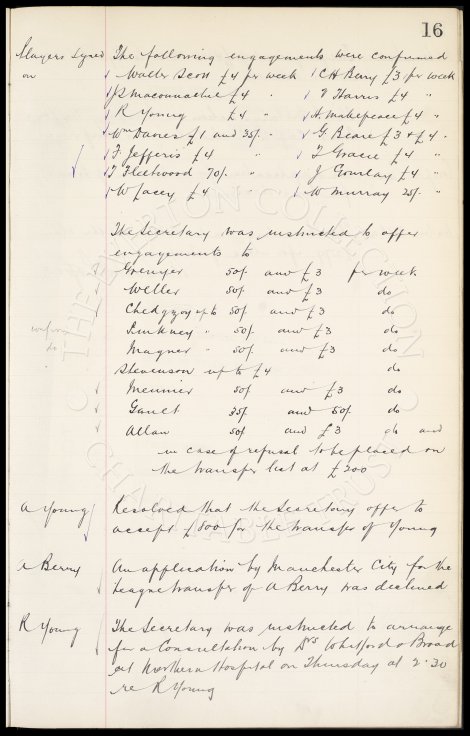 16
Players Signed on
The following engagements were confirmed
Walter Scott £4 per week C H Berry £3 per week
J S Maconnachie £4 " T Harris £4 "
R Young £4 " H. Makepeace £4 "
Wm Davies £1 and 35/- " G. Beare £3 + £4 "
F. Jefferis £4 " T Gracie £4 "
T Fleetwood 70/- " J Gourlay £4 "
W Lacey £4 " W Murray 25/- "
The Secretary was instructed to offer
engagements to
Grenyer 50/- and £3 per week
Weller 50/- and £3 do
Chedgzoy up to 50/- and £3 do
Pinkney " 50/- and £3 do
Magner " 50/- and £3 do
Stevenson up to £4 do
Meunier 50/- and £3 do
Gault 35/- and 50/- do
Allan 50/- and £3 do and
in case of refusal to be placed on
the transfer list at £200
A Young
Resolved that the Secretary offer to
accept £800 for the transfer of Young
A Berry
An application by Manchester City for the
League transfer of A Berry was declined
R Young
The Secretary was instructed to arrange
for a Consultation by Drs Whitford & Broad
at Northern Hospital on Thursday at 2.30
re R Young
THE EVERTON COLLECTION
CHARITABLE TRUST